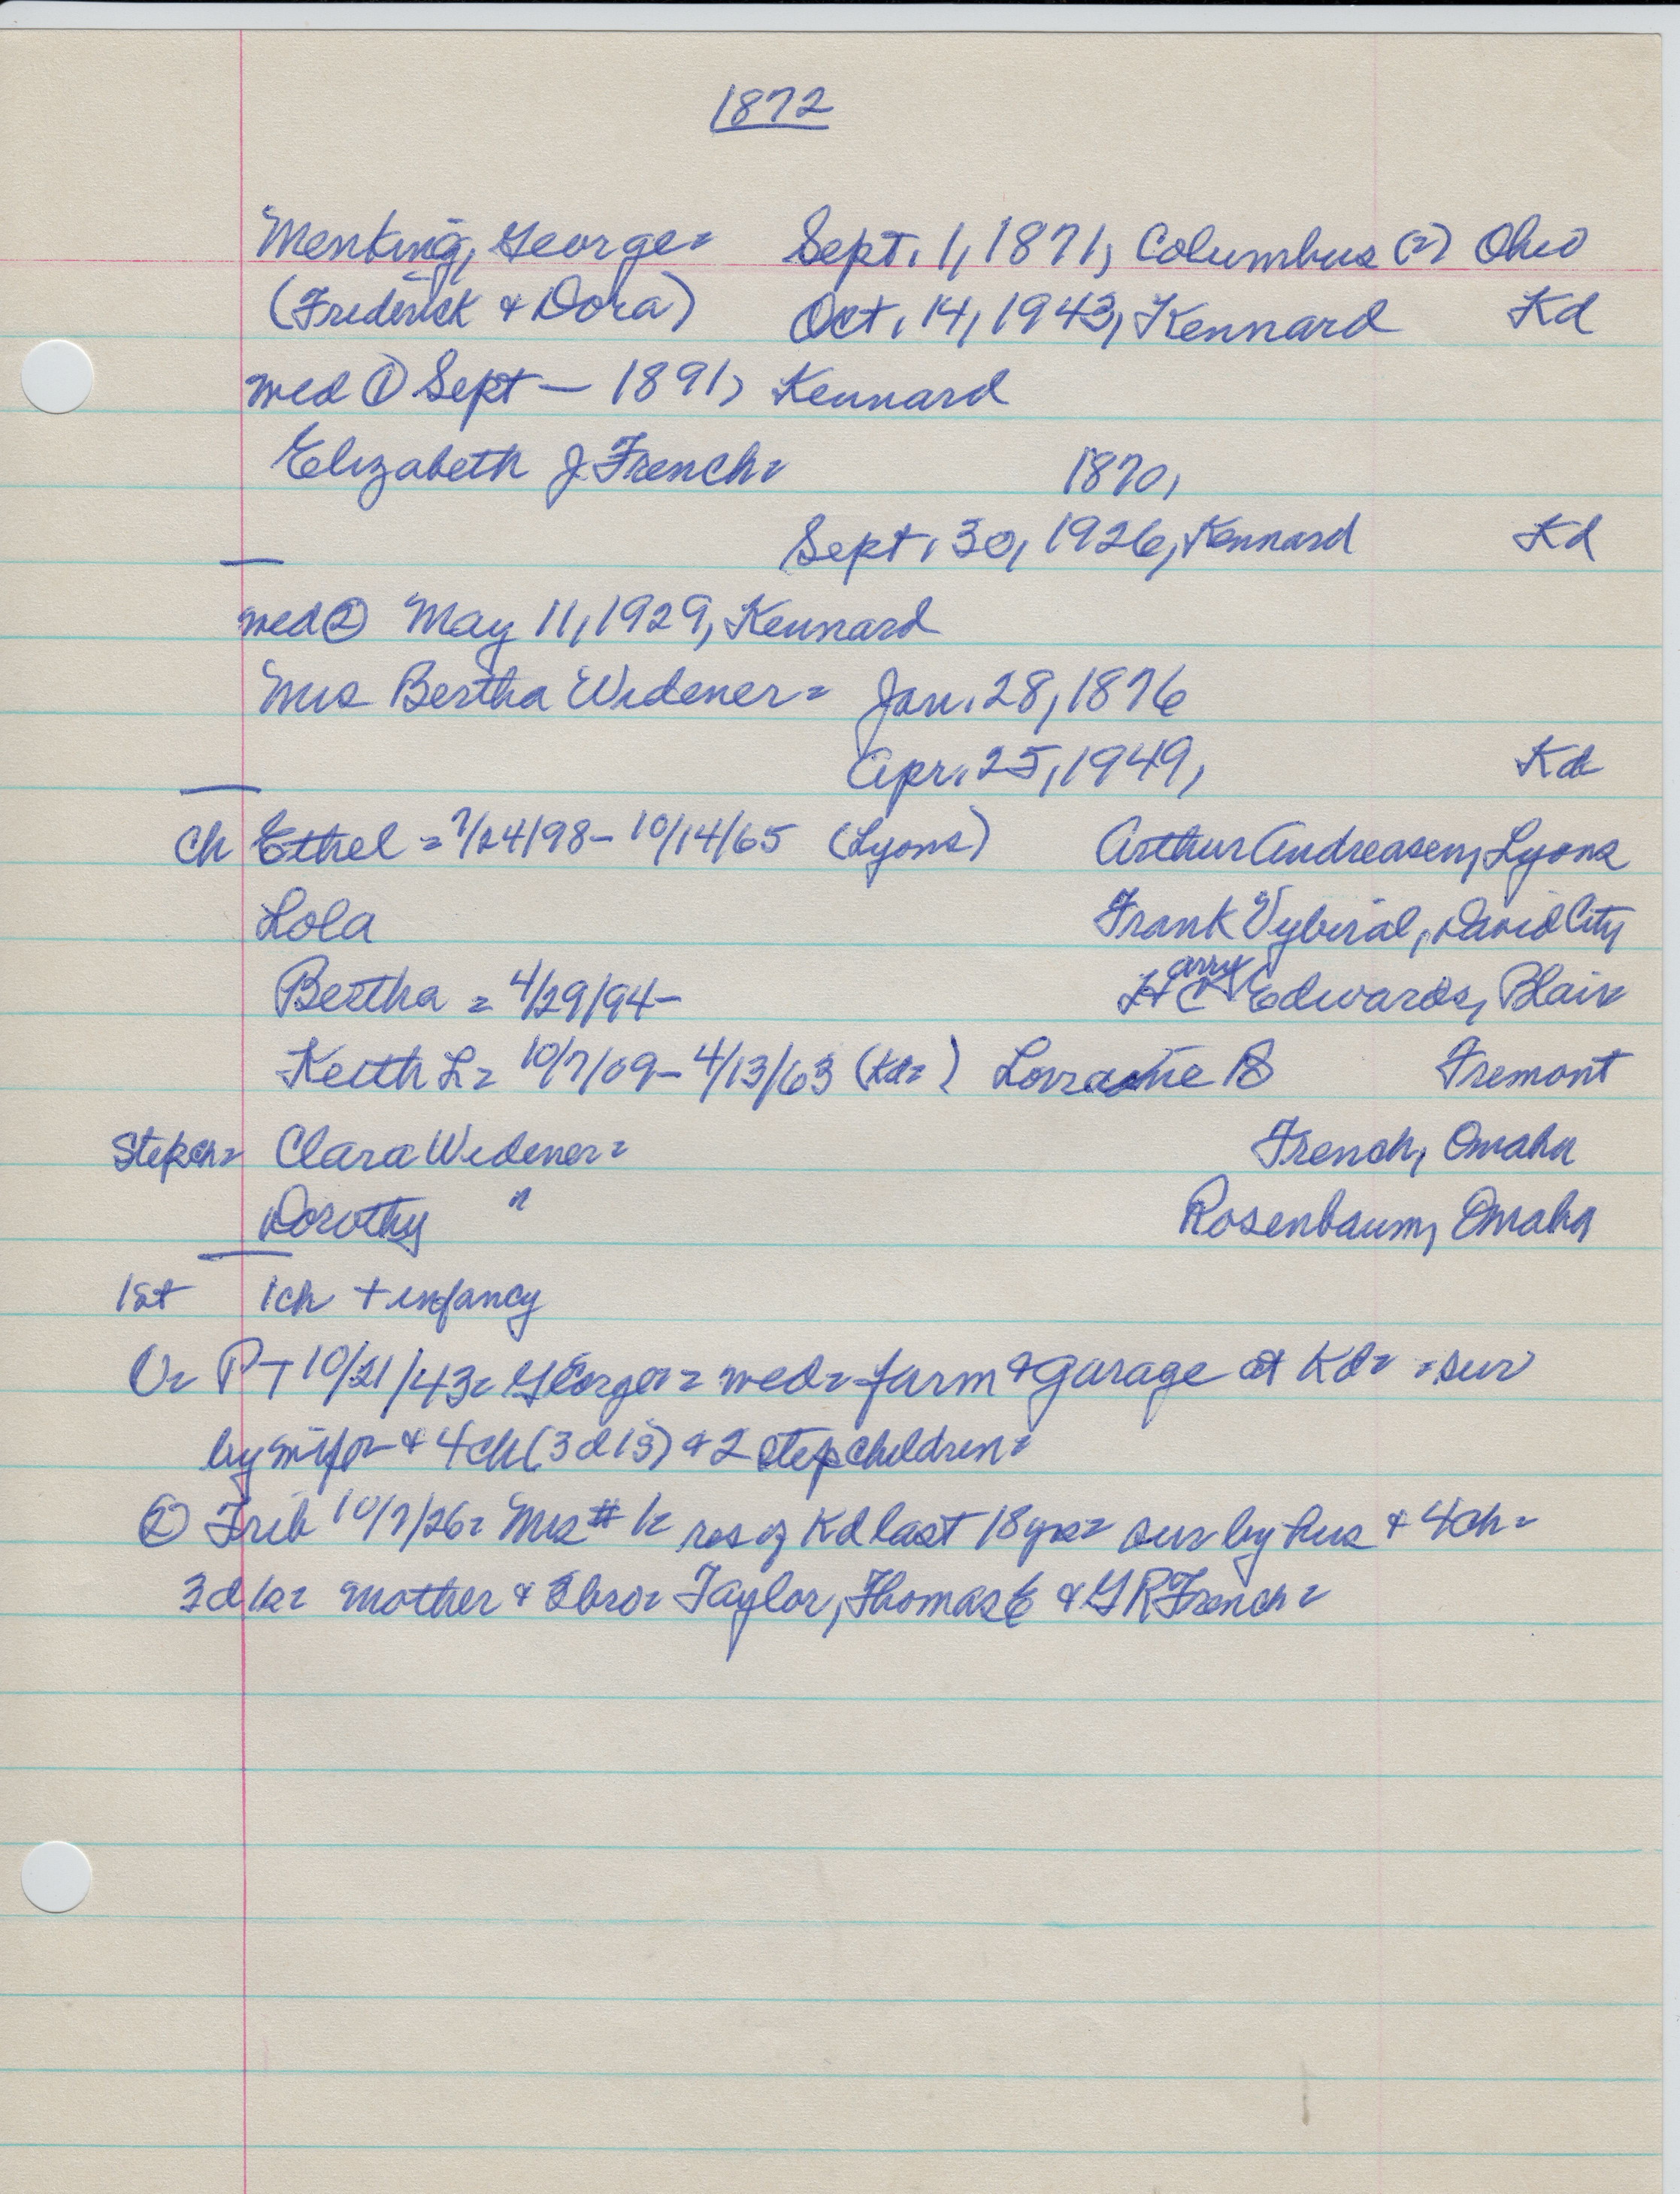 1872
Menking, George = Sept. 1, 1871, Columbus (?) Ohio
(Frederick & Dora) Oct. 14, 1943, Kennard Kd
med ① Sept — 1891, Kennard
Elizabeth J. French = 1870,
Sept. 30, 1926, Kennard Kd
med ② May 11, 1929, Kennard
Mrs Bertha Widener = Jan. 28, 1876
Apr. 25, 1949, Kd
Ch Ethel = 7/24/98 - 10/14/65 (Lyons) Arthur Andreasen, Lyons
Lola Frank Vyberal, David City
Bertha = 4/29/94 - Harry C Edwards, Blair
Keith L = 10/7/09 - 4/13/63 (Kd=) Lorraine B Fremont
Stepch = Clara Widener = French, Omaha
Dorothy " Rosenbaum, Omaha
1st 1ch + infancy
① = PT 10/21/43 = George = med = farm & garage at Kd = = sur
by & 4ch (3d 1s) & 2 stepchildren =
② Trib 10/7/26 = Mrs #1 = res of Kd last 18 yrs = sur by hus & 4ch =
3d 1s = mother & 3bro = Taylor, Thomas E & G R French =